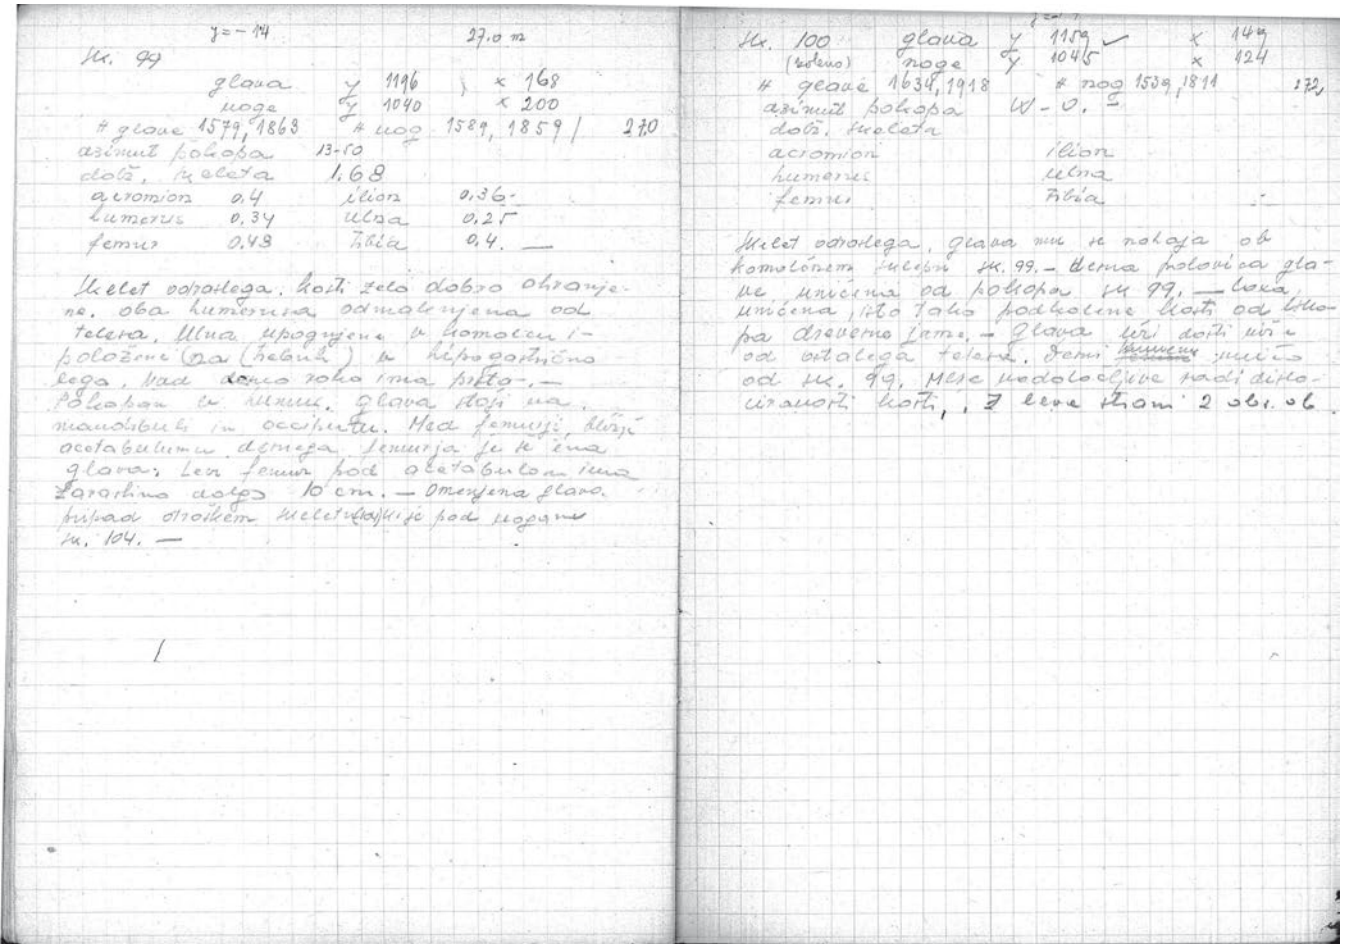 y = - 14 27.0 m
sk. 99
glava y 1196 , x 168
noge y 1040 x 200
# glave 1579, 1863 # nog 1589, 1859 / 270
azimut pokopa 13-50
dolž. skeleta 1.68
acromion 0,4 ilion 0,36-
humerus 0,34 ulna 0,25
femur 0,48 tibia 0,4. —
Skelet odraslega. Kosti zelo dobro ohranje-
ne. Oba humerusa odmaknjena od
telesa. Ulna upognjene v komolcu i-
položene (na trebuh) v hipogastrično
lego. Nad desno roko ima prsta-. —
Pokopan v humus. Glava stoji na
mandibuli in occiputu. Med femurji, bližje
acetabulumu desnega femurja je še ena
glava. Levi femur pod acetabulom ima
zaraslino dolgo 10 cm. — Omenjena glava
pripad otroškem skeletu ki je pod nogami
sk. 104. —
sk. 100 glava y 1159 ✓ x 149
(koleno) noge y 1045 x 124
# glave 1634, 1918 # nog 1539, 1811 272,
azimut pokopa W - O. ?
dolž. skeleta
acromion ilion
humerus ulna
femur tibia
Skelet odraslega, glava mu se nahaja ob
komolčnem sklepu sk. 99. - desna polovica gla-
ve uničena od pokopa sk 99. — Coxa
uničena, isto tako podkolene kosti od
pa drevesne jame. - Glava leži dosti više
od ostalega telesa. Desni humerus uničen
od sk. 99. Mere nedoločljive radi dislo-
ciranosti kosti, . Z leve strani 2 obs. ob